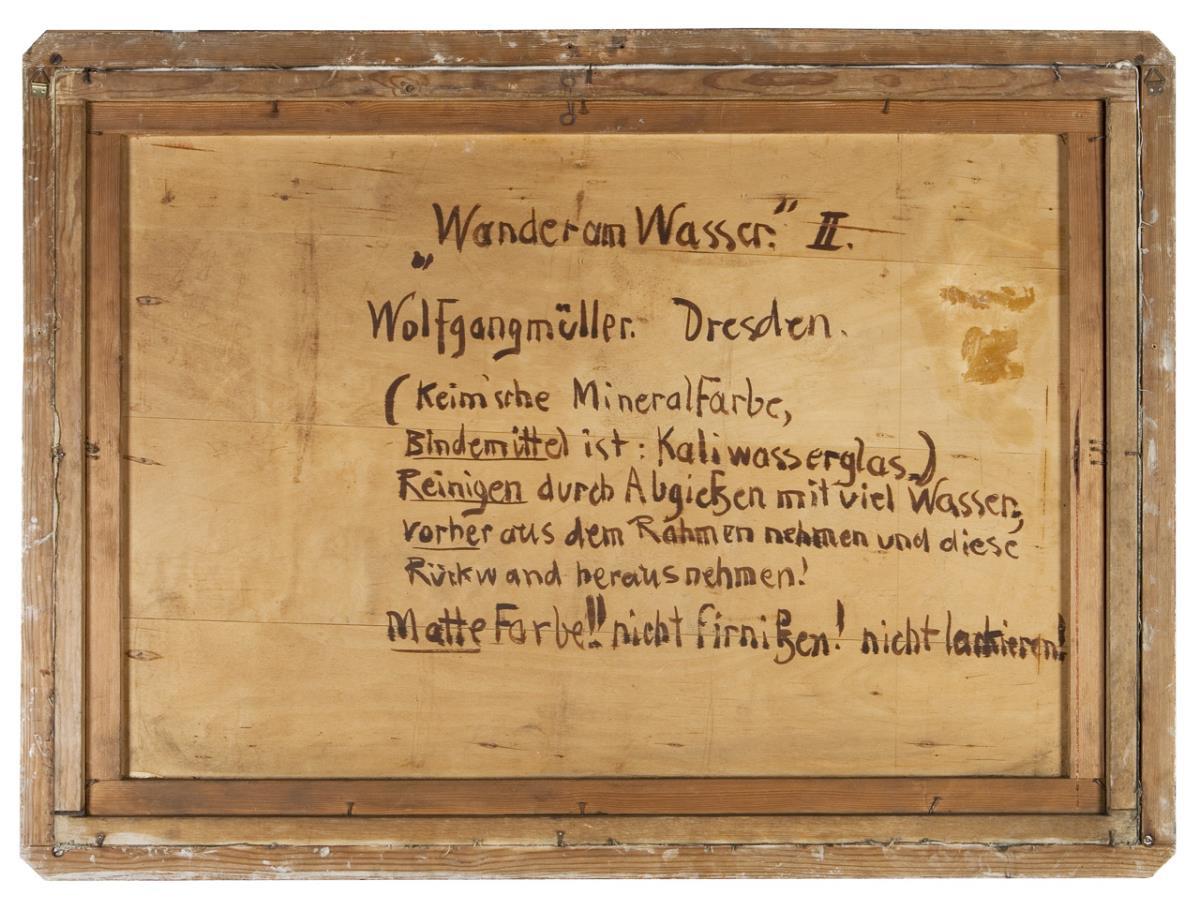 „Wander am Wasser." II.
Wolfgangmüller. Dresden.
(Keim'sche Mineralfarbe,
Bindemittel ist: Kaliwasserglas.)
Reinigen durch Abgießen mit viel Wasser,
vorher aus dem Rahmen nehmen und diese
Rückwand herausnehmen!
Matte Farbe!! nicht firnißen! nicht lackieren!